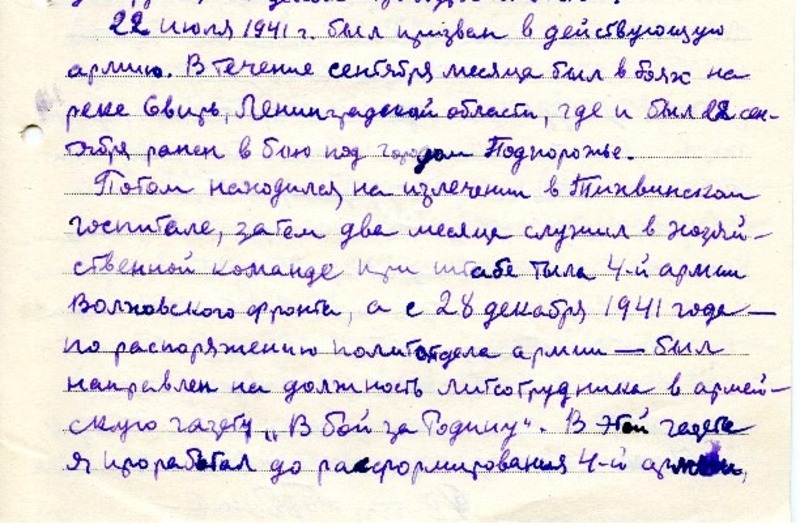 22 июля 1941 г. был призван в действующую
армию. В течение сентября месяца был в боях на
реке Свирь, Ленинградской области, где и был 22 сен-
тября ранен в бою под городом Подпорожье.
Потом находился на излечении в Тихвинском
госпитале, затем два месяца служил в хозяй-
ственной команде при штабе тыла 4-й армии
Волховского фронта, а с 28 декабря 1941 года —
по распоряжению политотдела армии — был
направлен на должность литсотрудника в армей-
скую газету „В бой за Родину". В этой газете
я проработал до расформирования 4-й армии,